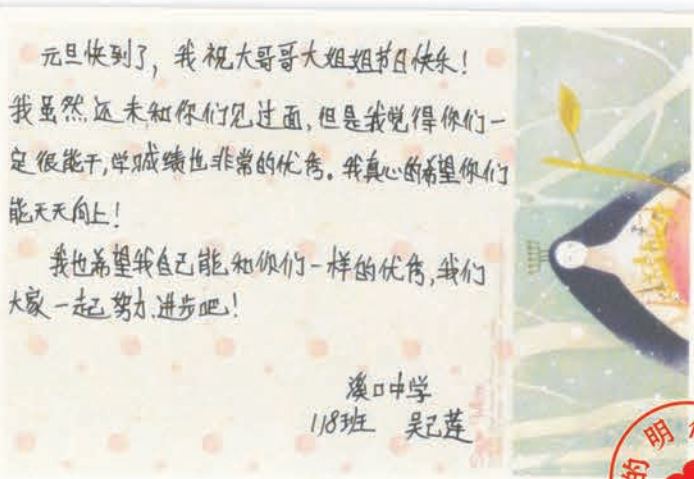 元旦快到了，我祝大哥哥大姐姐节日快乐！
我虽然还未和你们见过面，但是我觉得你们一
定很能干，学城绩也非常的优秀。我真心的希望你们
能天天向上！
我也希望我自己能和你们一样的优秀，我们
大家一起努力.进步吧！
溪口中学
118班 吴己莲
的明